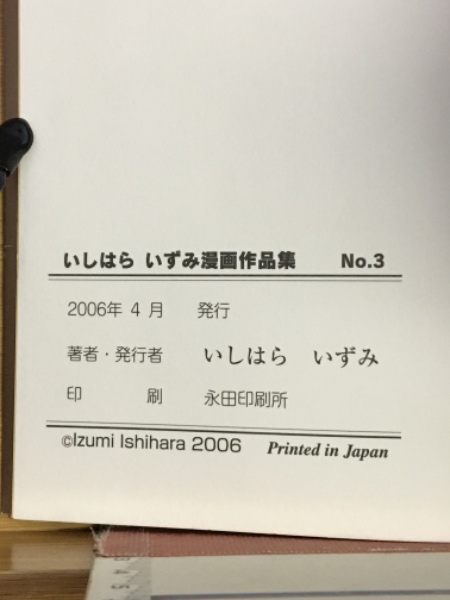 いしはら いずみ漫画作品集 No.3
2006年 4 月 発行
著者・発行者 いしはら いずみ
印 刷 永田印刷所
©Izumi Ishihara 2006 Printed in Japan
3 4 5